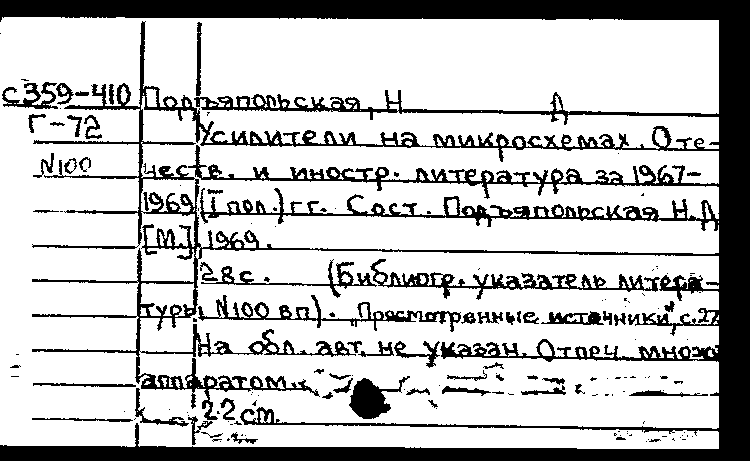 с359-410 Подъяпольская, Н Д
Г-72 Усилители на микросхемах. Оте-
N100 честв. и иностр. литература за 1967-
1969 (I пол.) гг. Сост. Подъяпольская Н.Д
[М.], 1969.
28с. (Библиогр. указатель литера-
туры N100 вп). „Просмотренные источники", с.27
На обл. авт. не указан. Отпеч. множ
аппаратом.
22 cm.